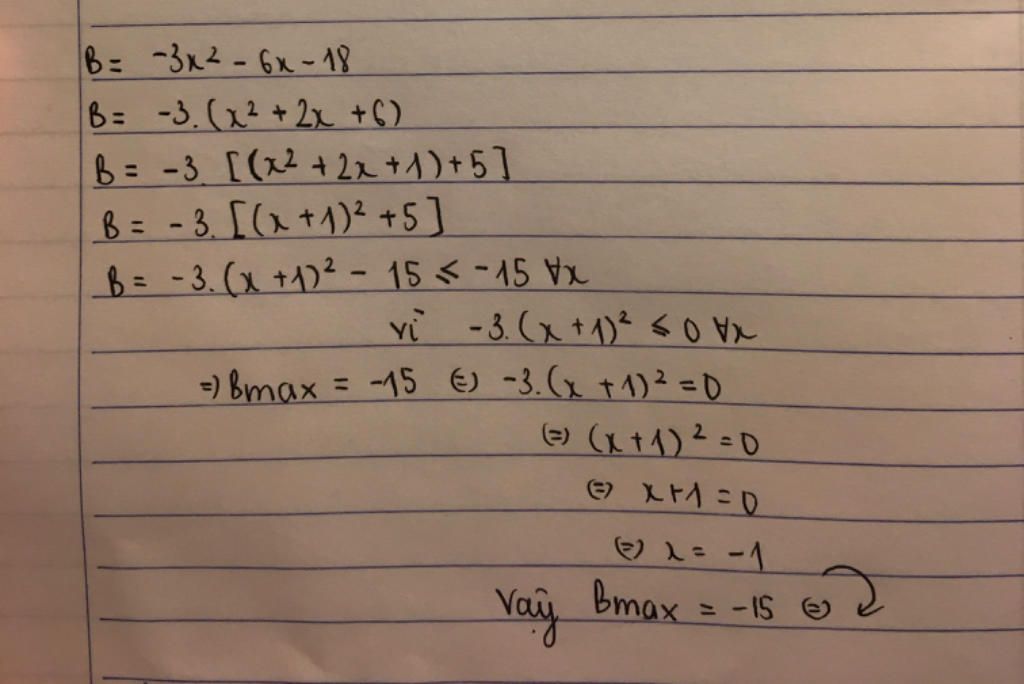 B = -3x² - 6x - 18
B = -3.(x² + 2x + 6)
B = -3. [(x² + 2x + 1) + 5]
B = -3. [(x + 1)² + 5]
B = -3.(x + 1)² - 15 ≤ -15 ∀x
vì -3.(x + 1)² ≤ 0 ∀x
=> Bmax = -15 (=) -3.(x + 1)² = 0
(=) (x + 1)² = 0
(=) x + 1 = 0
(=) x = -1
Vậy Bmax = -15 (=)